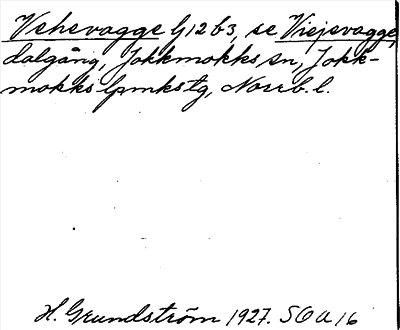 Vehevagge G12b3, se Viejevagge,
dalgång, Jokkmokks sn, Jokk-
mokks lpmkstg, Norrb. l.
H. Grundström 1927. SOA 16